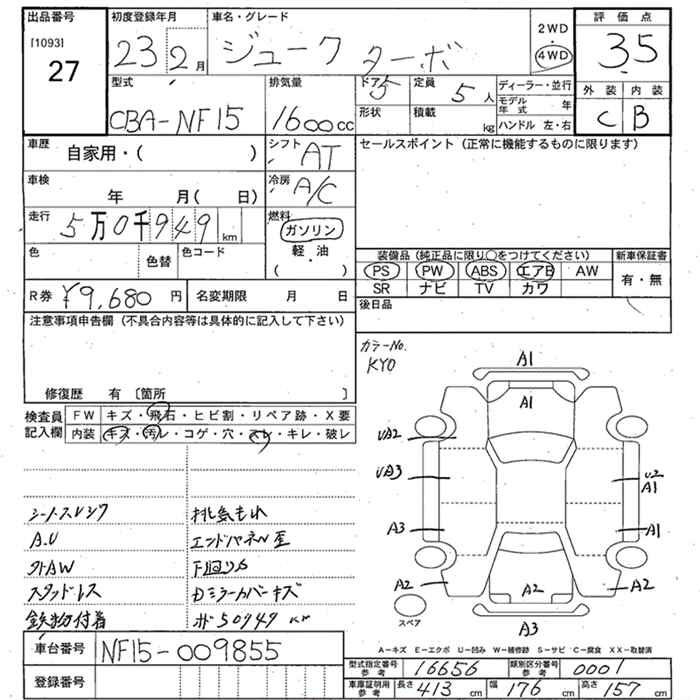 出品番号 初度登録年月 車名・グレード 2WD 評価点
[1093] 27 23 2月 ジューク ターボ 4WD 3.5
型式 排気量 ドア 5 定員 5人 ディーラー・並行 外装 内装
CBA-NF15 1600cc 形状 積載 kg モデル年式 年 C B
ハンドル 左・右
車歴 自家用・( ) シフト AT セールスポイント (正常に機能するものに限ります)
車検 年 月( 日) 冷房 A/C
走行 5万0千949km 燃料 ガソリン
色 色替 色コード 軽・油 装備品(純正品に限り○をつけてください) 新車保証書
( ) PS PW ABS エアB AW 有・無
SR ナビ TV カワ
R券 ¥9,680円 名変期限 月 日 後日品
注意事項申告欄(不具合内容等は具体的に記入して下さい)
カラーNo.
KY0
修復歴 有〔箇所 〕
検査員記入欄 FW キズ・飛石・ヒビ割・リペア跡・X要
内装 キズ・汚レ・コゲ・穴・スレ・キレ・破レ
A1
A1
UA2
UA3 U2 A1
A3 A1
A2 A2 A2
スペア A3
A.U エンドパネル歪
社外AW 下回りサ
スタッドレス Dミラーカバーキズ
鉄物付着 ㋱50949
A−キズ E−エクボ U−凹み W−補修跡 S−サビ C−腐食 XX−取替済
車台番号 NF15-009855
登録番号
型式指定番号 参考 16656 類別区分番号 参考 0001
車庫証明用 参考 長さ 413cm 幅 176cm 高さ 157cm